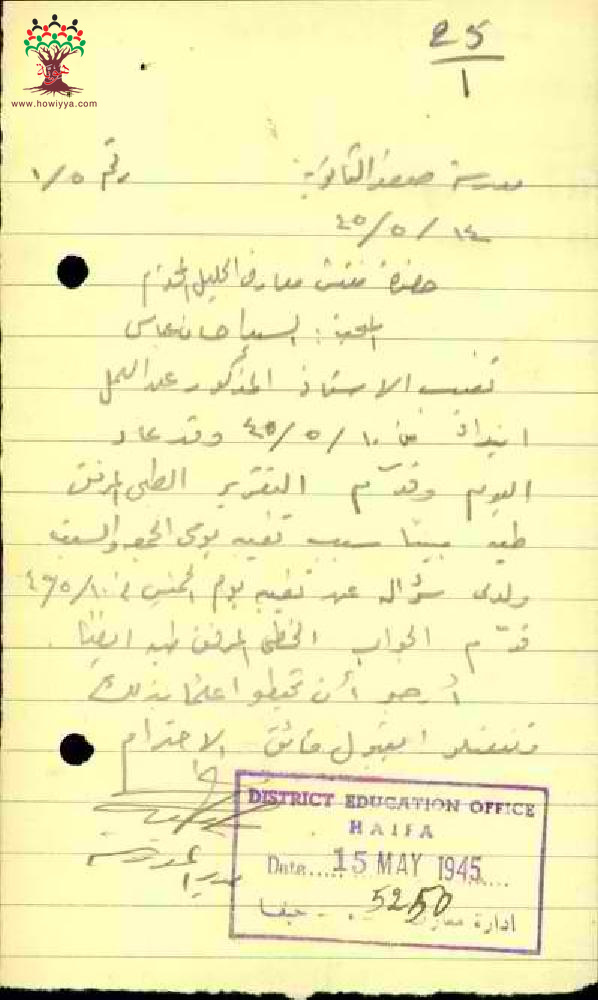 25
1
www.howiyya.com
مدرسة صفد الثانوية
رقم ١/٥
١٤/٥/٤٥
حضرة مفتش معارف الجليل المحترم
السيد احسان عباس
تغيب الاستاذ المذكور عن العمل
ابتداءً من ١٠/٥/٤٥ وقد عاد
اليوم وقدّم التقرير الطبي المرفق
طيه مبيناً سبب تغيبه يومي الجمعة والسبت
ولدى سؤاله عن تغيبه يوم الخميس في ١٠/٥/٤٥
قدّم الجواب الخطي المرفق طيه ايضاً.
أرجو أن تحيطوا علماً بذلك
وتتفضلوا بقبول فائق الاحترام
مدير المدرسة
DISTRICT EDUCATION OFFICE
HAIFA
Date..... 15 MAY 1945
5250
ادارة معارف حيفا